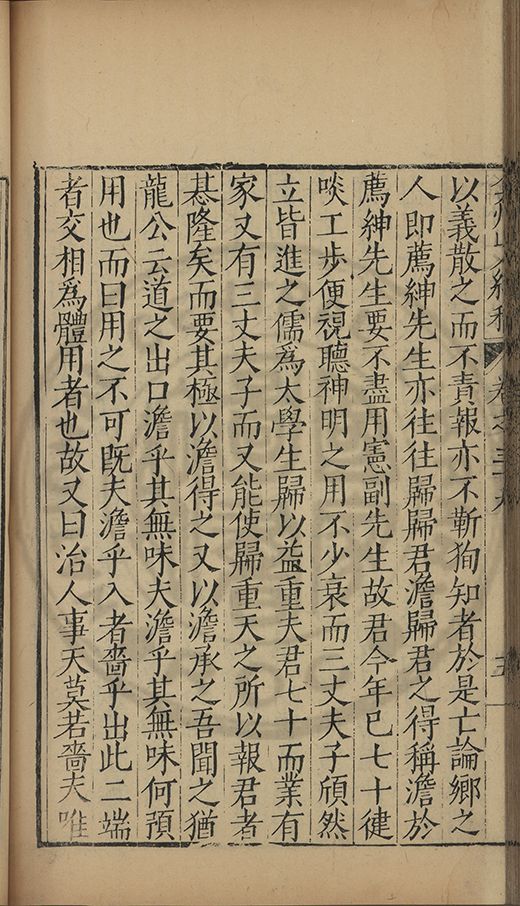 以義散之而不責報亦不靳狥知者於是亡論鄉之
人即薦紳先生亦往往歸歸君澹歸君之得稱澹於
薦紳先生要不盡用憲副先生故君今年巳七十健
啖工步便視聽神明之用不少衰而三丈夫子頎然
立皆進之儒爲太學生歸以益重夫君七十而業有
家又有三丈夫子而又能使歸重天之所以報君者
甚隆矣而要其極以澹得之又以澹承之吾聞之猶
龍公云道之出口澹乎其無味夫澹乎其無味何預
用也而曰用之不可既夫澹乎入者嗇乎出此二端
者交相爲體用者也故又曰治人事天莫若嗇夫唯